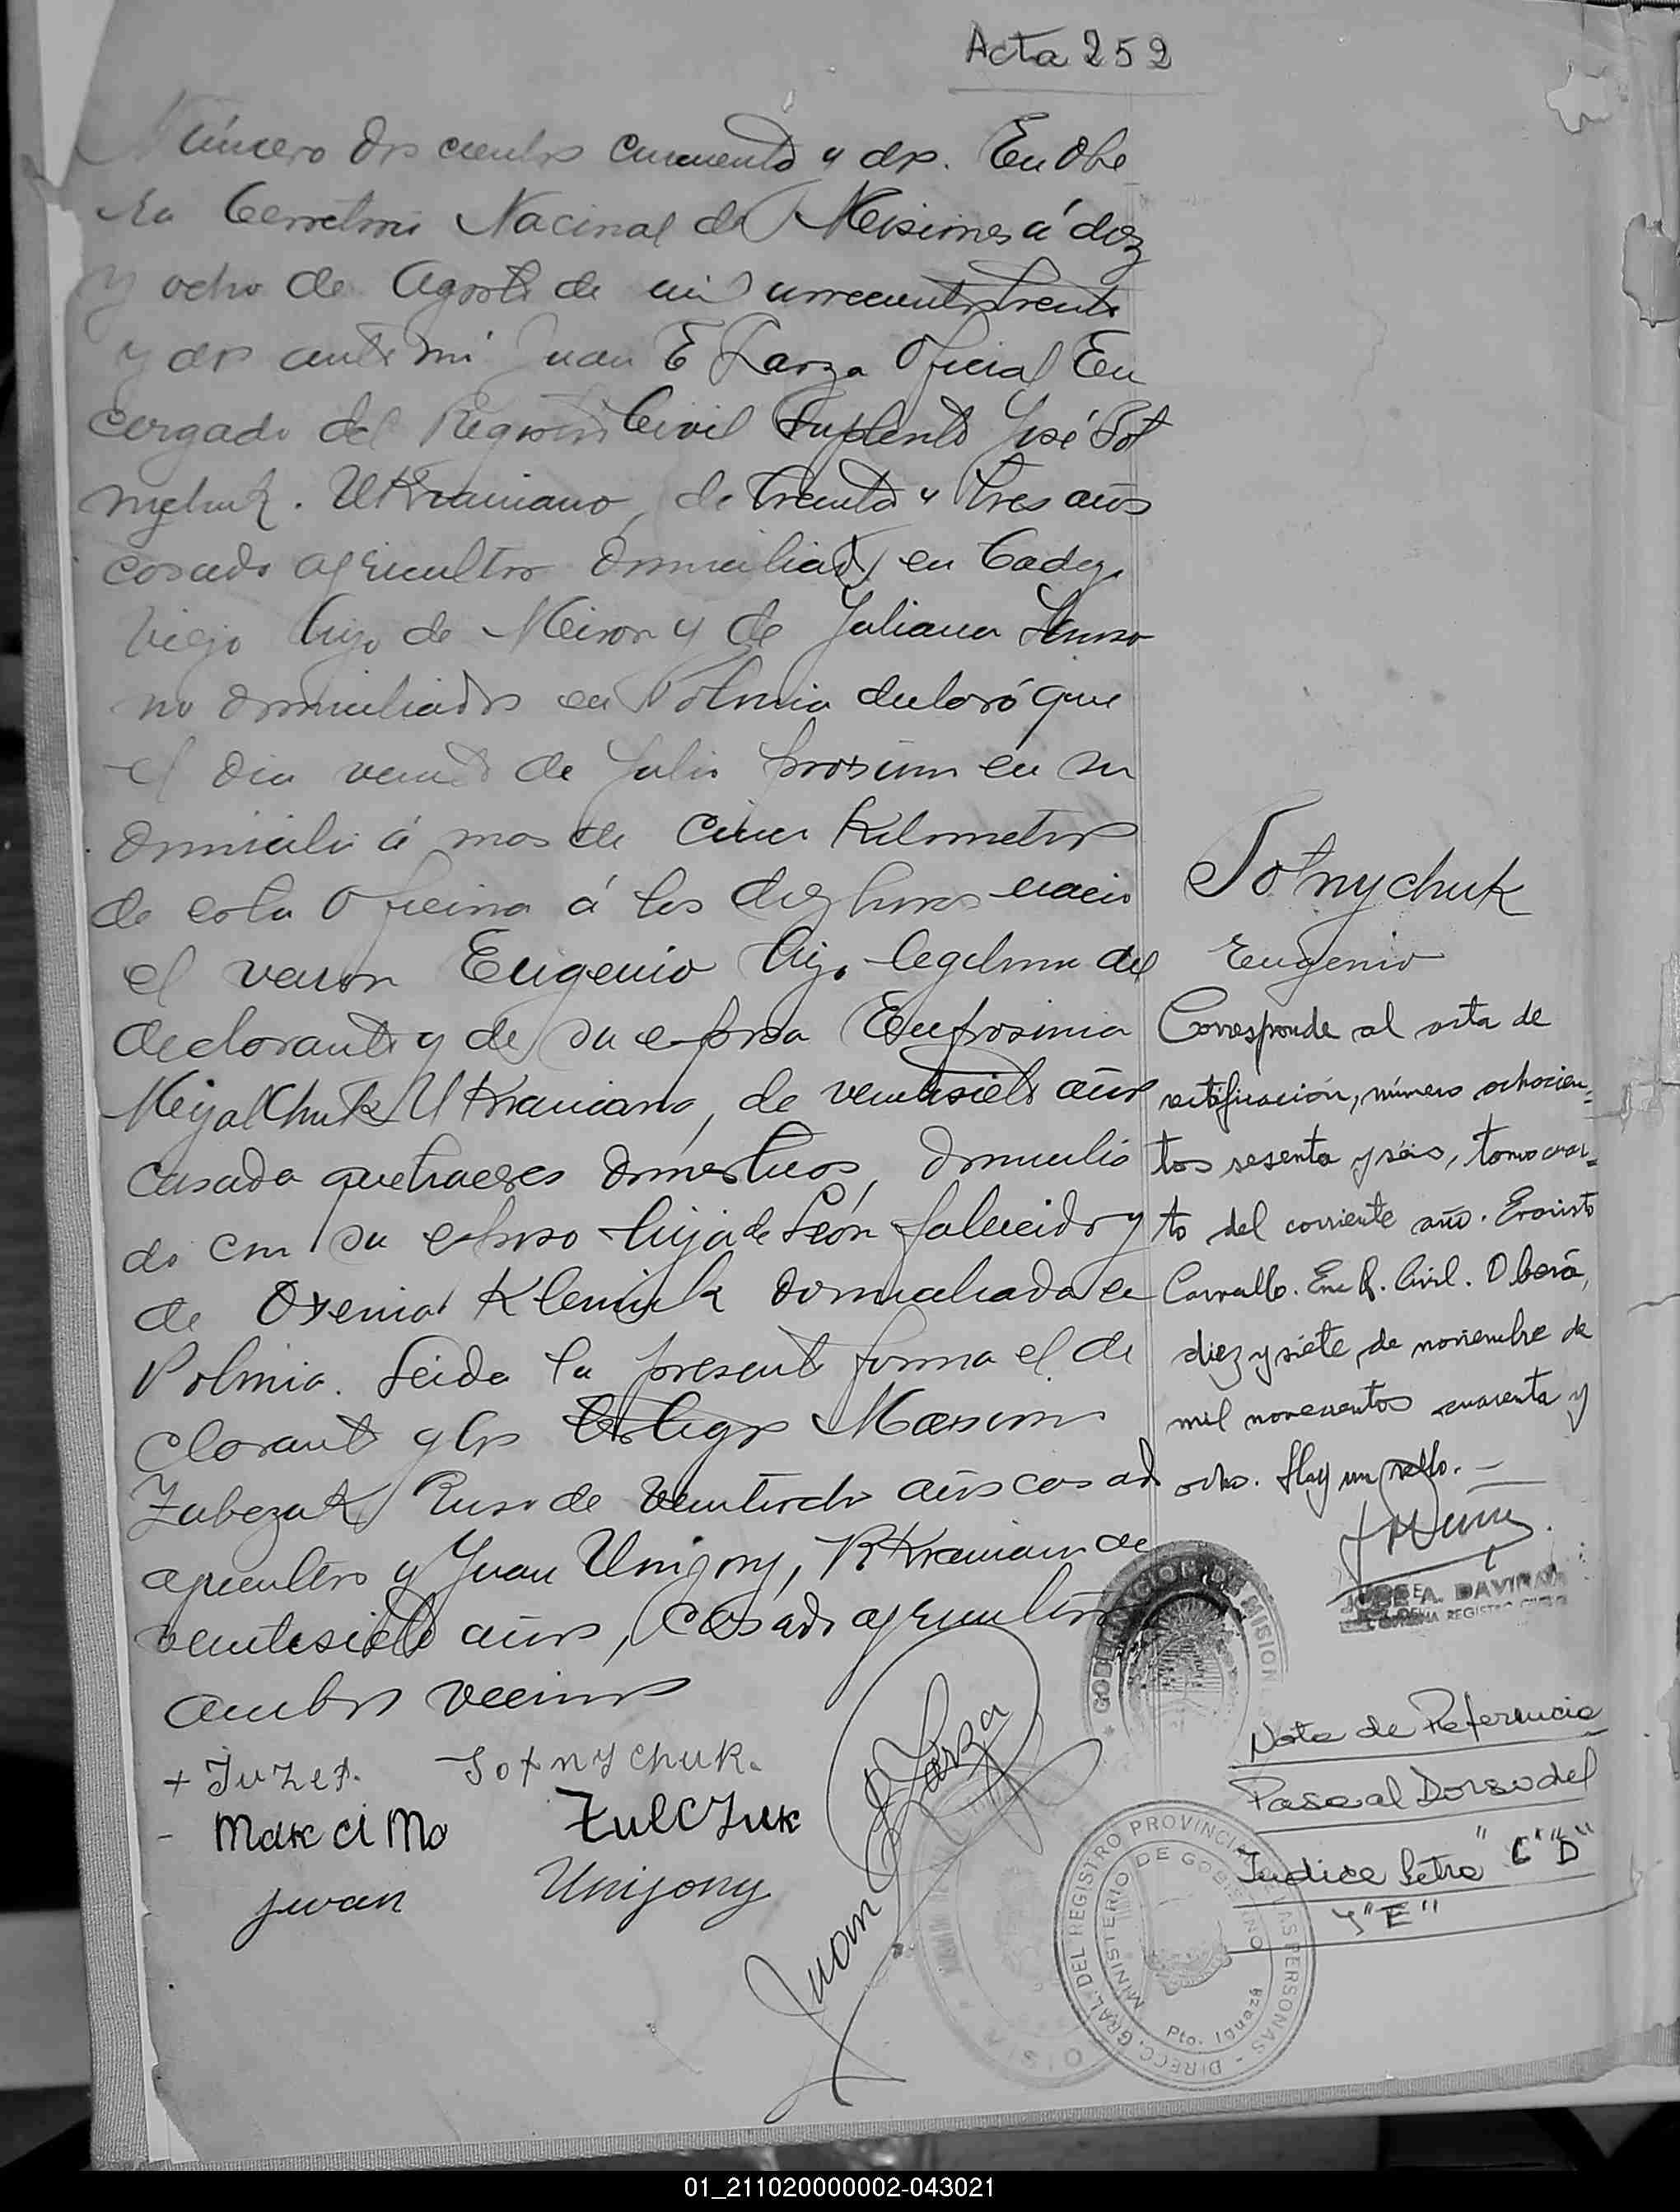 Acta 252
Número dos cientos cincuenta y dos. En Obe
ra Territorio Nacional de Misiones á diez
y ocho de Agosto de mil novecientos treinta
y dos ante mi Juan E Larza Oficial En
cargado del Registro Civil Suplente José Sot
nychuk. Ukraniano, de treinta y tres años
casado agricultor domiciliado en
Viejo hijo de Miron y de Juliana
no domiciliados en Polonia declaró que
el dia veinte de Julio proximo en su
domicilio á mas de cinco Kilometros
de esta Oficina á las diez horas nació
el varon Eugenio hijo legitimo del
declarante y de su esposa Eufrosinia
Mejalchuk Ukraniana, de veintisiete años
casada quehaceres domesticos, domicilia
da con su esposo hija de León fallecido y
de Oxenia domiciliada en
Polonia. Leida la presente firma el de
clarante y los testigos Maximo
Ruso de veintiocho años casado
agricultor y Juan Unijony, Ukraniano de
veintisiete años, casado agricultor
ambos vecinos
+ Juzef. Sotnychuk.
- Makcimo Zulczuk
Juan Unijony
Juan E Larza
Sotnychuk
Eugenio
Corresponde al acta de
rectificación, número ochocien=
tos sesenta y séis, tomo cuar=
to del corriente año. Evaristo
Carvallo. Enc R. Civil. Oberá,
diez y siete de noviembre de
mil novecientos cuarenta y
ocho. Hay un sello.
JOSE A. DAVIÑA
REGISTRO CIVIL
GOBERNACION DE MISIONES
Nota de Referencia
Pase al Dorso del
Indice Letra "C" "D"
y "E"
DIRECC. GRAL. DEL REGISTRO PROVINCIAL DE LAS PERSONAS
MINISTERIO DE GOBIERNO
Pto. Iguazú
01_211020000002-043021